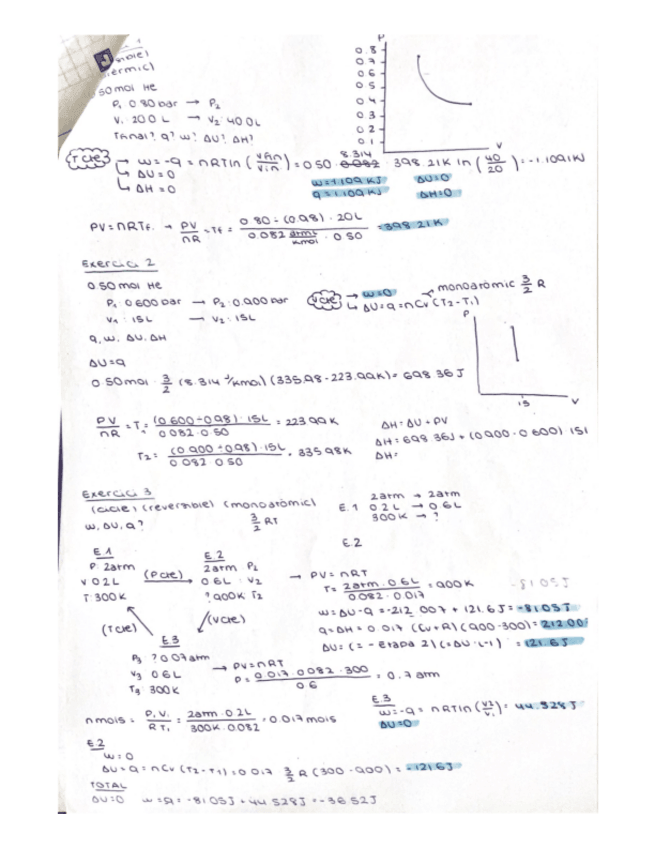 0.50 mol He
P₁ 0.80 bar → P₂
V₁ 20.0 L → V₂ 40.0 L
T final? q? w? ΔU? ΔH?
P
0.8
0.7
0.6
0.5
0.4
0.3
0.2
0.1
V
T cte → w = -q = nRT ln (Vfin/Vin) = 0.50 · 8.314 · 398.21K ln (40/20) = -1.109KJ
↳ ΔU = 0
↳ ΔH = 0
w = 1.109 KJ ΔU = 0
q = 1.109 KJ ΔH = 0
PV = nRTf → PV/nR = Tf = 0.80 ÷ (0.98) · 20L / 0.082 · 0.50 = 398.21K
Exercici 2
0.50 mol He
P₁: 0.600 bar → P₂: 0.900 bar
V₁: 15L → V₂: 15L
V cte → w = 0
↳ ΔU = q = nCv (T2 - T1)
monoatòmic 3/2 R
q, w, ΔU, ΔH
ΔU = q
0.50 mol · 3/2 (8.314 J/Kmol) (335.98 - 223.99K) = 698.36 J
P
15
V
PV/nR = T₁ = (0.600 ÷ 0.98) · 15L / 0.082 · 0.50 = 223.99K
T₂ = (0.900 ÷ 0.98) · 15L / 0.082 · 0.50 = 335.98K
ΔH = ΔU + PV
ΔH = 698.36J + (0.900 - 0.600) 15L
ΔH =
Exercici 3
(cicle) (reversible) (monoatòmic)
w, ΔU, q? 3/2 RT
E.1 2atm → 2atm
0.2L → 0.6L
300K → ?
E.2
E.1
P: 2atm
V: 0.2L
T: 300K
(P cte)
E.2
2atm P₂
0.6L V₂
? 900K T₂
(T cte)
(V cte)
E3
P₃ ? 0.07atm
V₃ 0.6L
T₃ 300K
→ PV = nRT
T = 2atm · 0.6L / 0.082 · 0.017 = 900K
-81.05J
w = ΔU - q = -212.007 + 121.6J = -81.05J
q = ΔH = 0.017 (Cv + R) (900 - 300) = 212.00
ΔU = (= - etapa 2) = 121.6J
→ PV = nRT
P = 0.017 · 0.082 · 300 / 0.6 = 0.7 atm
n mols = P₁V₁/RT₁ = 2atm · 0.2L / 300K · 0.082 = 0.017 mols
E.3
w = -q = nRT ln (V2/V1) = 44.528J
ΔU = 0
E.2
w = 0
ΔU = q = nCv (T2 - T1) = 0.017 3/2 R (300 - 900) = -121.6J
TOTAL
ΔU = 0 w = q = -81.05J + 44.528J = -36.52J